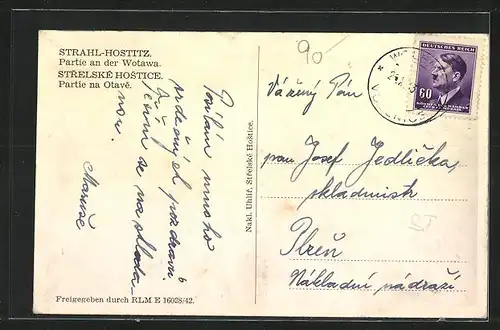 STRAHL-HOSTITZ.
Partie an der Wotawa.
STŘELSKÉ HOŠTICE.
Partie na Otavě.
Posílám mnoho
srdečných pozdravů
Těším se na
Freigegeben durch RLM E 16028/42.
Nakl. Uhlíř, Střelské Hoštice.
90-
DEUTSCHES REICH
60
BÖHMEN U. MÄHREN
ČECHY A MORAVA
Vážený Pán
pan Josef Jedlička
skladník
Plzeň
Nákladní nádraží